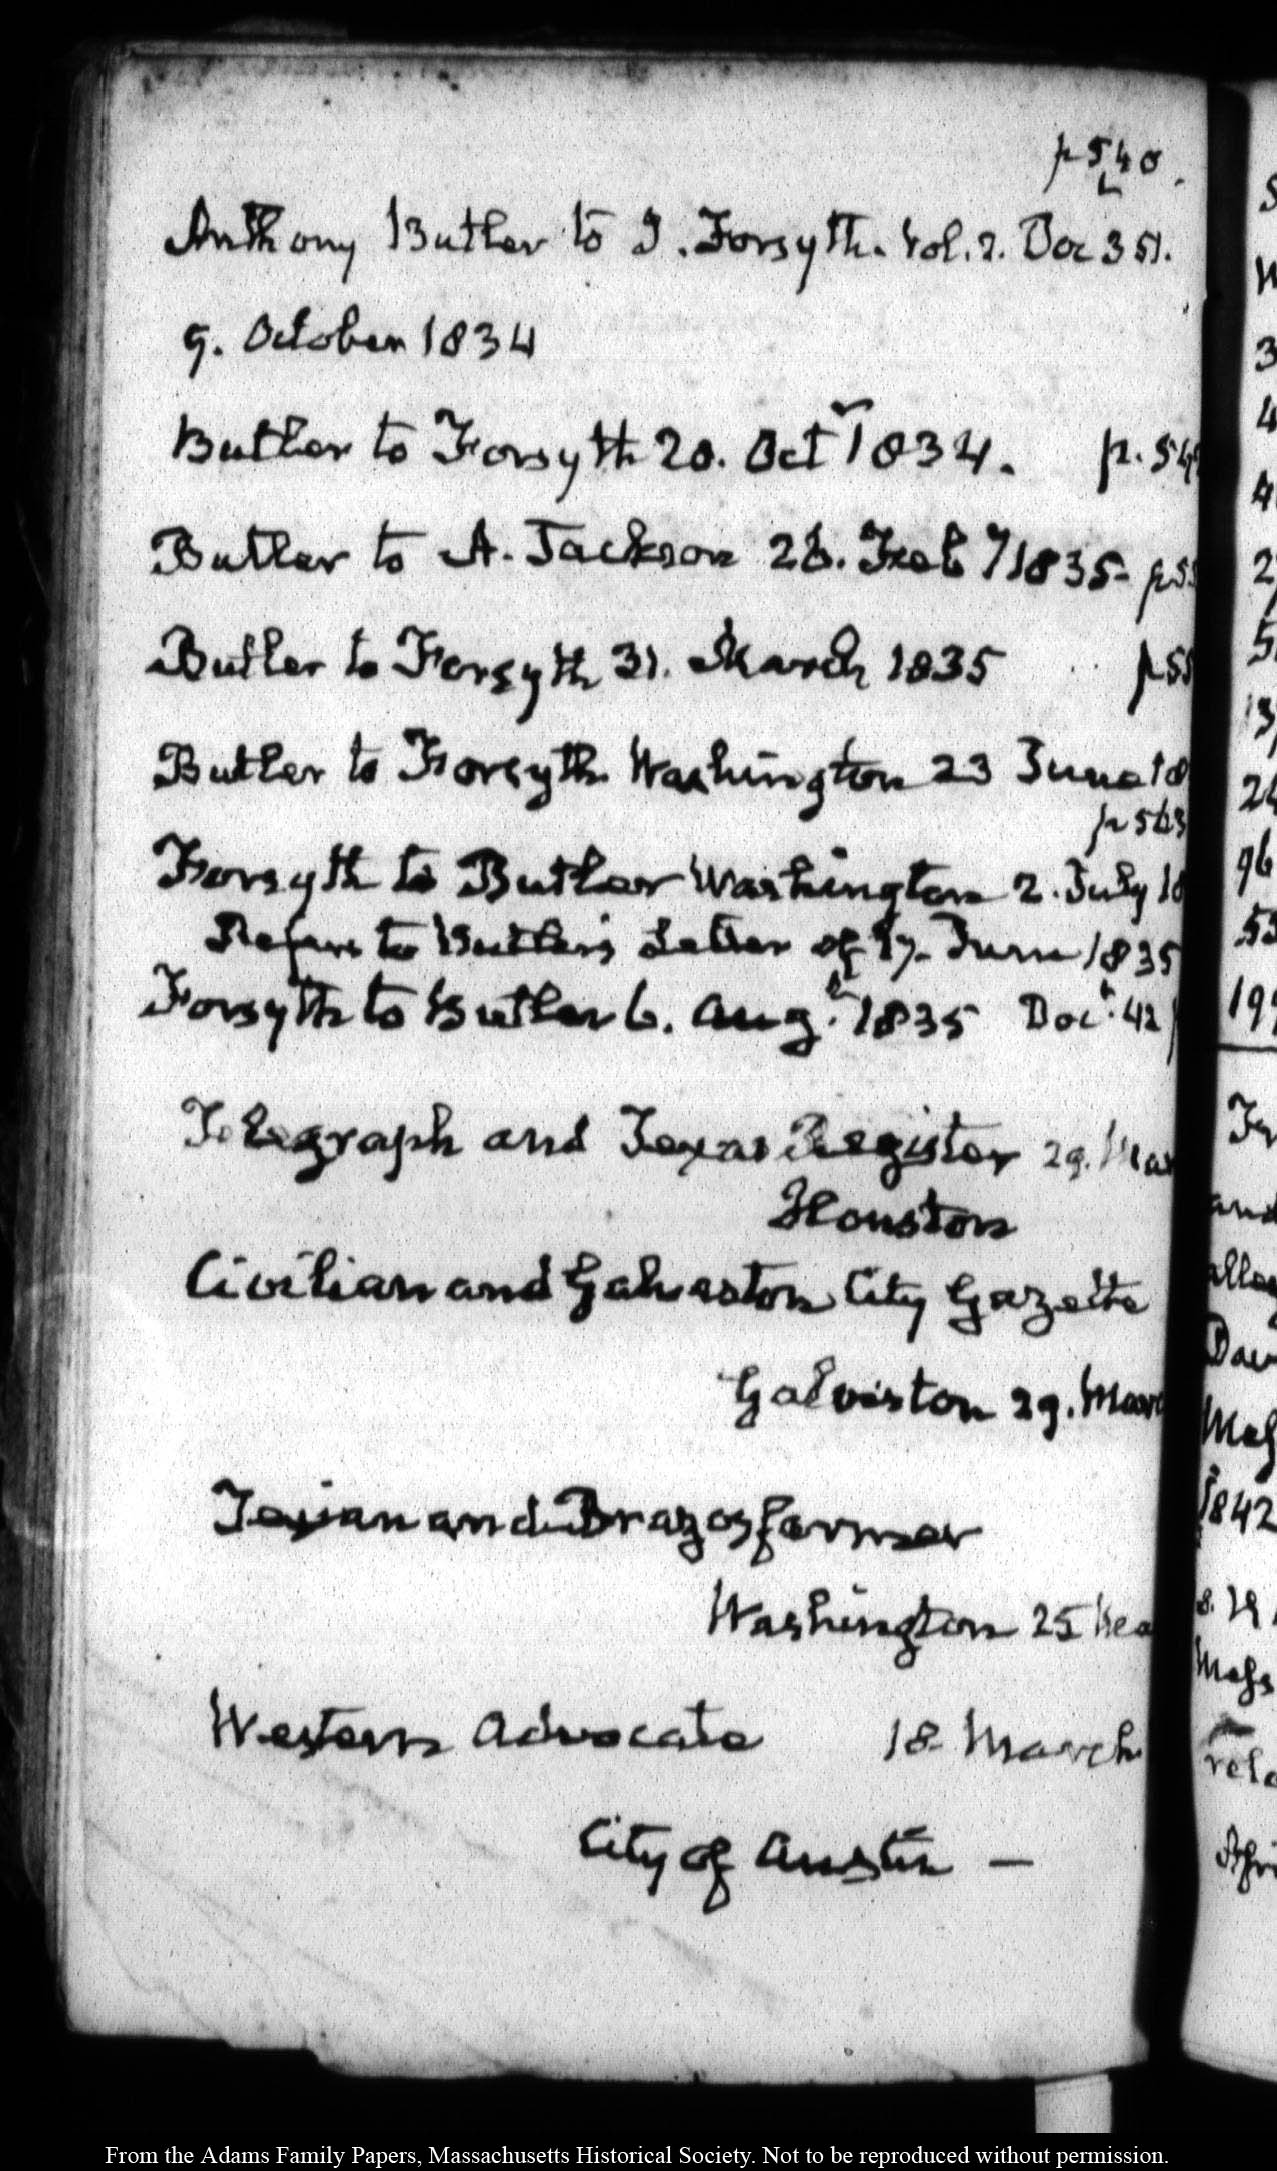 p 540.
Anthony Butler to J. Forsyth. Vol. 2. Doc 351.
9. October 1834
Butler to Forsyth 20. Octr 1834. p. 54
Butler to A. Jackson 26. Feby 1835- p 55
Butler to Forsyth 31. March 1835 p 55
Butler to Forsyth Washington 23 June 18
p 563
Forsyth to Butler Washington 2. July 18
Refers to Butler's Letter of 17. June 1835
Forsyth to Butler 6. Aug.t 1835 Doct. 42 p
Telegraph and Texas Register 29. Mar
Houston
Civilian and Galveston City Gazette
Galveston 29. Marc
Texian and Brazos farmer
Washington 25
Western Advocate 18. March
City of Austin —
From the Adams Family Papers, Massachusetts Historical Society. Not to be reproduced without permission.